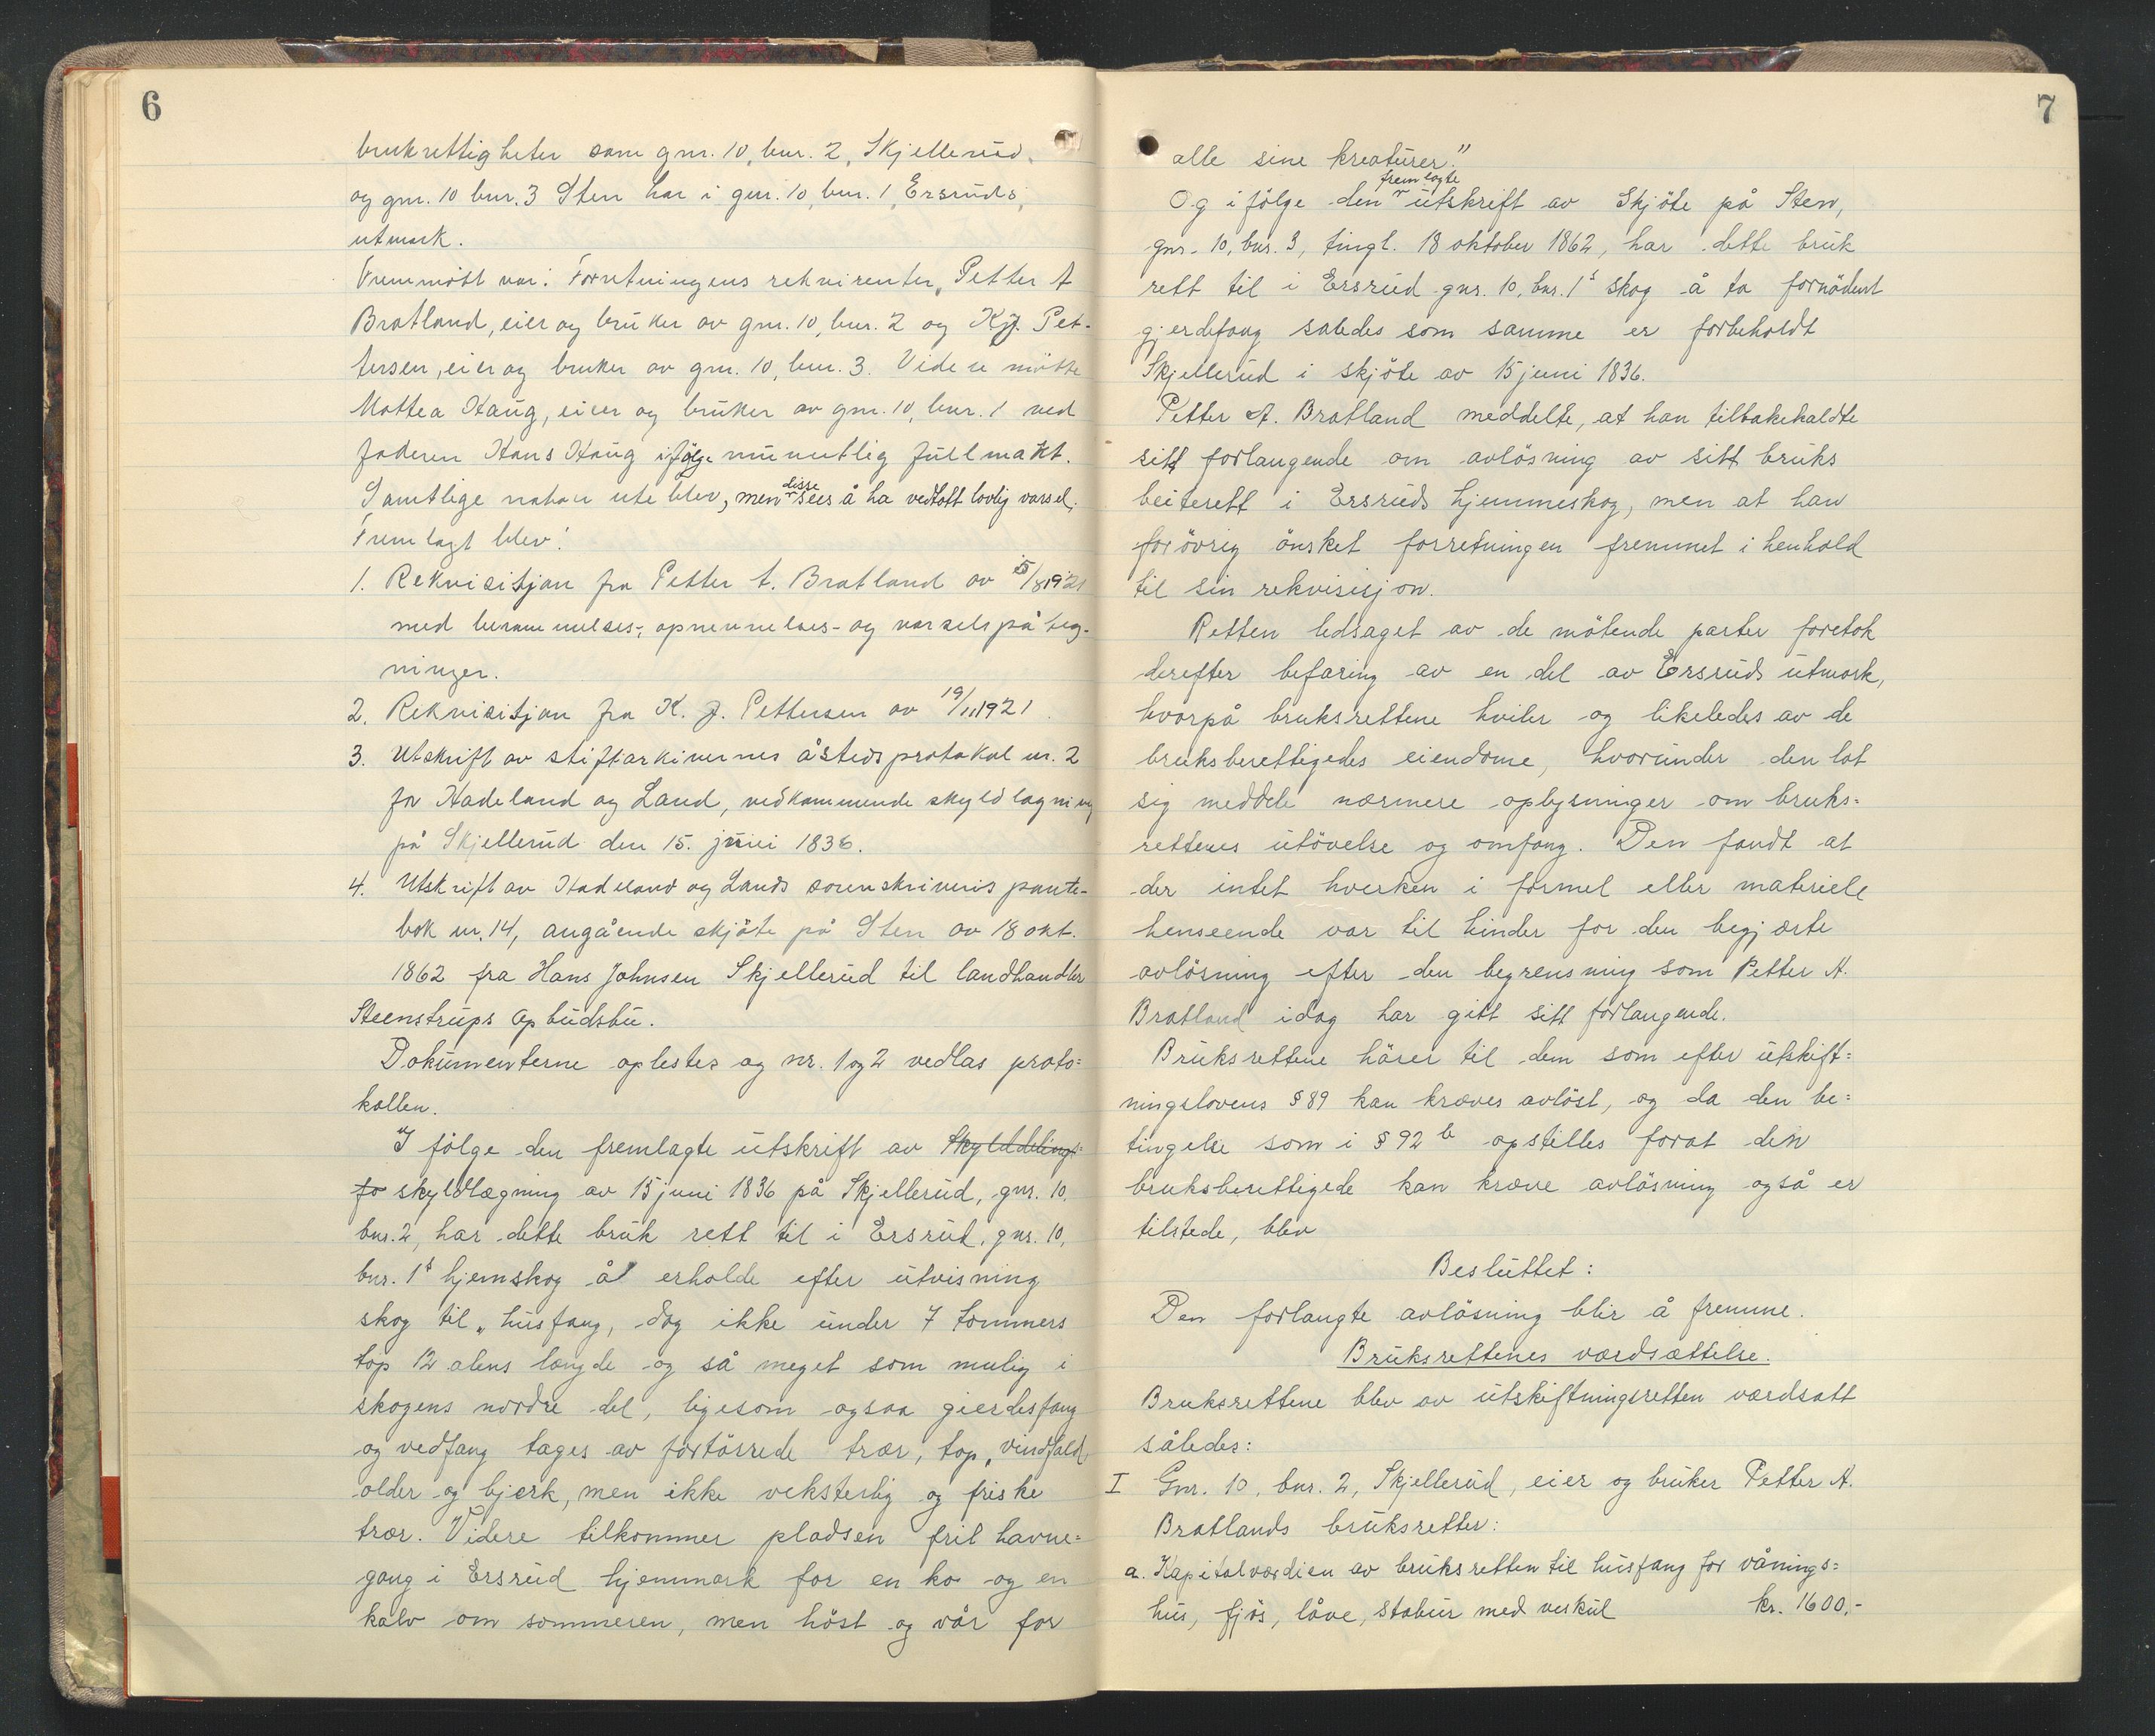 6
brukrettigheter som gnr. 10, bnr. 2, Skjellerud,
og gnr. 10 bnr. 3 Sten har i gnr. 10, bnr. 1, Ersruds,
utmark.
Fremmött var: Forretningens rekvirenter, Petter A
Bratland, eier og bruker av gnr. 10, bnr. 2 og K.J. Pet-
tersen, eier og bruker av gnr. 10, bnr. 3. Videre mötte
Mattea Haug, eier og bruker av gnr. 10, bnr. 1 ved
faderen Hans Haug ifölge munntlig fullmakt.
Samtlige naboer ute blev, men disse sees å ha vedtatt lovlig varsel.
Fremlagt blev:
1. Rekvisitjon fra Petter A. Bratland av /8 1921
med berammelses-, opnevnelses- og varselspåteg-
ninger.
2. Rekvisitjon fra K. J. Pettersen av 19/11 1921.
3. Utskrift av stiftarkivernes åstedsprotokol nr. 2
for Hadeland og Land, vedkommende skyldlagning
på Skjellerud den 15. juni 1836.
4. Utskrift av Hadeland og Lands sorenskriveris pante-
bok nr. 14, angående skjöte på Sten av 18 okt.
1862 fra Hans Johnsen Skjellerud til landhandler
Steenstrups opbudsbu.
Dokumenterne oplestes og nr. 1 og 2 vedlas proto=
kollen.
I fölge den fremlagte utskrift av Skylddelings=
fo skyldlægning av 15 juni 1836 på Skjellerud, gnr. 10,
bnr. 2, har dette bruk rett til i Ersrud, gnr. 10,
bnr. 1s hjemskog å erholde efter utvisning
skog til „husfang, dog ikke under 7 tommers
top 12 alens længde og så meget som mulig i
skogens nordre del, ligesom ogsaa gierdesfang
og vedfang tages av fortörrede trær, top, vindfald
older og bjerk, men ikke veksterlig og friske
trær. Videre tilkommer pladsen frit havne=
gang i Ersrud hjemmark for en ko og en
kalv om sommeren, men höst og vår for
7
alle sine kreaturer."
Og i fölge den fremlagte utskrift av Skjöte på Sten,
gnr. 10, bnr. 3, tingl. 18 oktober 1862, har dette bruk
rett til i Ersrud gnr. 10, bnr. 1s skog å ta fornödent
gjerdefang således som samme er forbeholdt
Skjellerud i skjöte av 15 juni 1836.
Petter A. Bratland meddelte, at han tilbakekaldte
sitt forlangende om avlösning av sitt bruks
beiterett i Ersruds hjemmeskog, men at han
forövrig önsket forretningen fremmet i henhold
til sin rekvisisjon.
Retten ledsaget av de mötende parter foretok
derefter befaring av en del av Ersruds utmark,
hvorpå bruksrettene hviler og likeledes av de
bruksberettigedes eiendome, hvorunder den lot
sig meddele nærmere oplysninger om bruks=
rettenes utövelse og omfang. Den fandt at
der intet hverken i formel eller materiell
henseende var til hinder for den begjærte
avlösning efter den begrensning som Petter A.
Bratland idag har gitt sitt forlangende.
Bruksrettene hörer til dem som efter utskift=
ningslovens § 89 kan kræves avlöst, og da den be=
tingelse som i § 92 b opstilles forat den
bruksberettigede kan kræve avlösning også er
tilstede, blev
Besluttet:
Den forlangte avlösning blir å fremme.
Bruksrettenes værdsættelse.
Bruksrettene blev av utskiftningsretten værdsatt
således:
I Gnr. 10, bnr. 2, Skjellerud, eier og bruker Petter A.
Bratlands bruksretter:
a. Kapitalværdien av bruksretten til husfang for vånings=
hus, fjös, låve, stabur med veskul kr. 1600,-